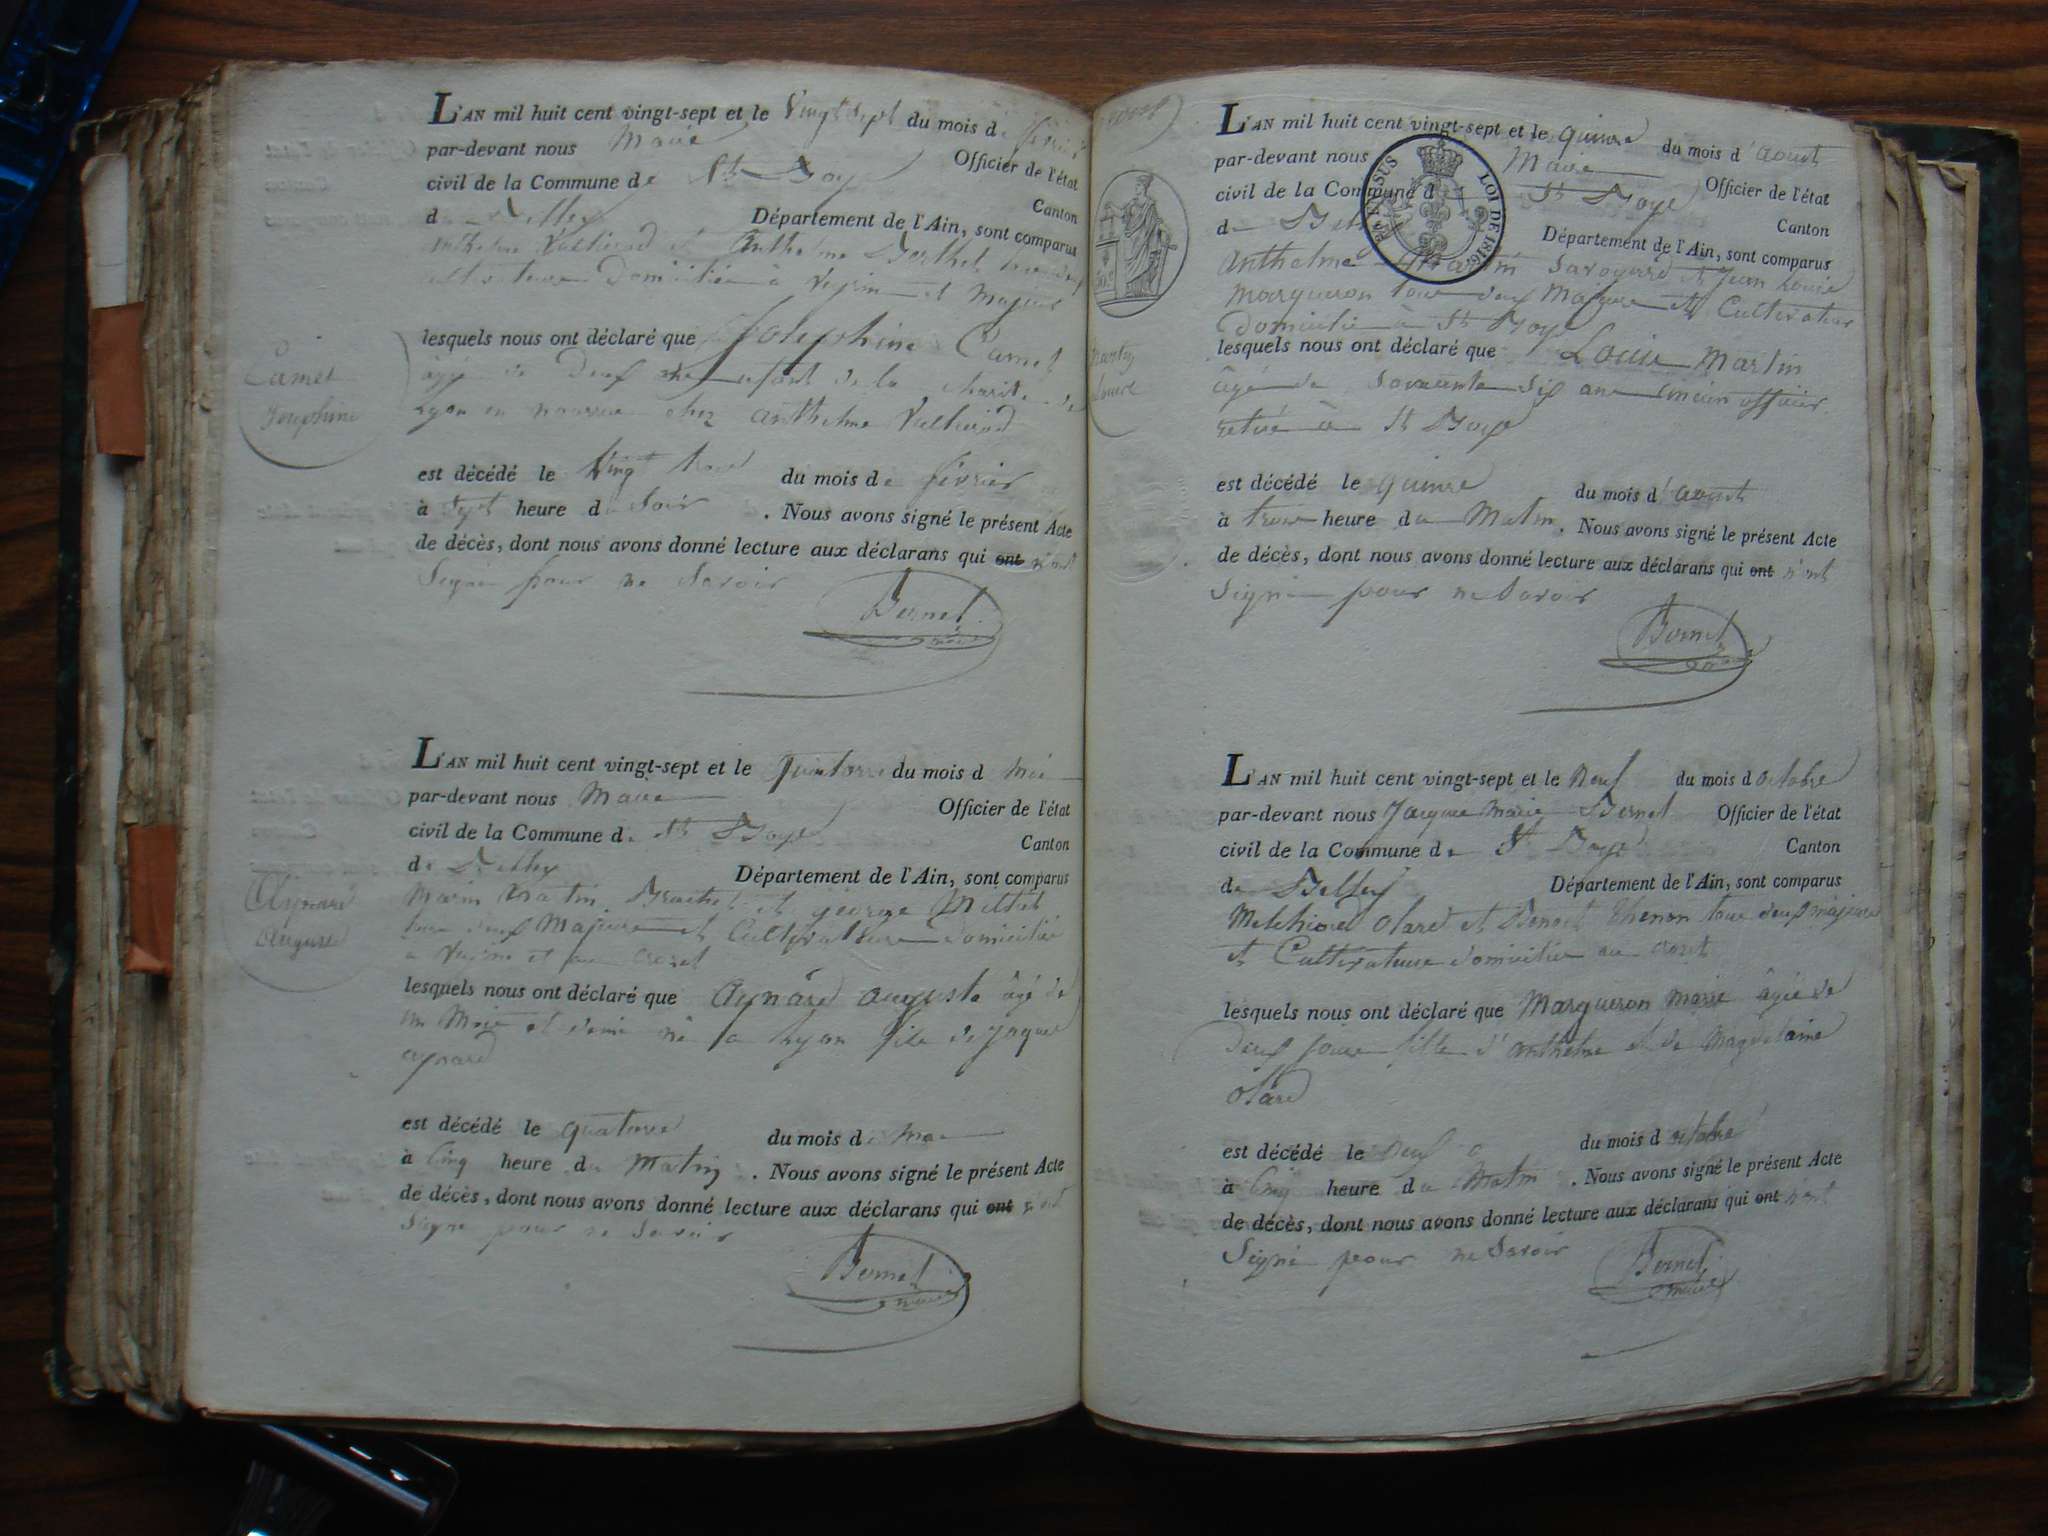 L'AN mil huit cent vingt-sept et le Vingt sept du mois de février
par-devant nous Maire
Officier de l'état
civil de la Commune de St Boys
Canton
de Belley Département de l'Ain, sont comparus
Anthelme et Anthelme Berthet
cultivateurs Domiciliés à et Majeurs
lesquels nous ont déclaré que Josephine Camet
âgée de Deux enfant de la charité de
Lyon en nourrice chez Anthelme
Camet
Josephine
est décédé le Vingt trois du mois de février
à Sept heure du Soir. Nous avons signé le présent Acte
de décès, dont nous avons donné lecture aux déclarans qui ont n'ont
Signé pour ne Savoir
Bernet
maire
L'AN mil huit cent vingt-sept et le Quatorze du mois d mai
par-devant nous Maire
Officier de l'état
civil de la Commune de St Boys
Canton
de Belley
Département de l'Ain, sont comparus
Marin et george Millet
tous deux Majeurs et Cultivateurs domiciliés
à et au crozet
Aynard
Auguste
lesquels nous ont déclaré que Aynard auguste âgé de
un Mois et demi né a Lyon fils de Jaques
aynard
est décédé le quatorze du mois d mai
à Cinq heure du Matin. Nous avons signé le présent Acte
de décès, dont nous avons donné lecture aux déclarans qui ont n'ont
Signé pour ne Savoir
Bernet
maire
L'AN mil huit cent vingt-sept et le quinze du mois d'aoust
par-devant nous Maire
Officier de l'état
civil de la Commune d St Boys
Canton
de
Département de l'Ain, sont comparus
LOI DE 1816.
Anthelme Martin Savoyard et Jean Louis
Margueron tous deux Majeurs et Cultivateurs
Domiciliés à St Boys
lesquels nous ont déclaré que Louis Martin
âgé de Soixante Six ans ancien officier
retiré à St Boys
Martin
Louis
est décédé le quinze du mois d'aoust
à trois heure du Matin. Nous avons signé le présent Acte
de décès, dont nous avons donné lecture aux déclarans qui ont n'ont
Signé pour ne Savoir
Bernet
maire
L'AN mil huit cent vingt-sept et le neuf du mois d octobre
par-devant nous Jacque Marie Bernet Officier de l'état
civil de la Commune de St Boys Canton
de Belley Département de l'Ain, sont comparus
Melchior olard et Benoit Thenon tous deux majeurs
et Cultivateurs domiciliés au crozet
lesquels nous ont déclaré que Margueron marie âgée de
Deux jours fille d'anthelme et de Magdelaine
olard
est décédé le neuf du mois d octobre
à Cinq heure du Matin. Nous avons signé le présent Acte
de décès, dont nous avons donné lecture aux déclarans qui ont n'ont
Signé pour ne Savoir
Bernet
maire